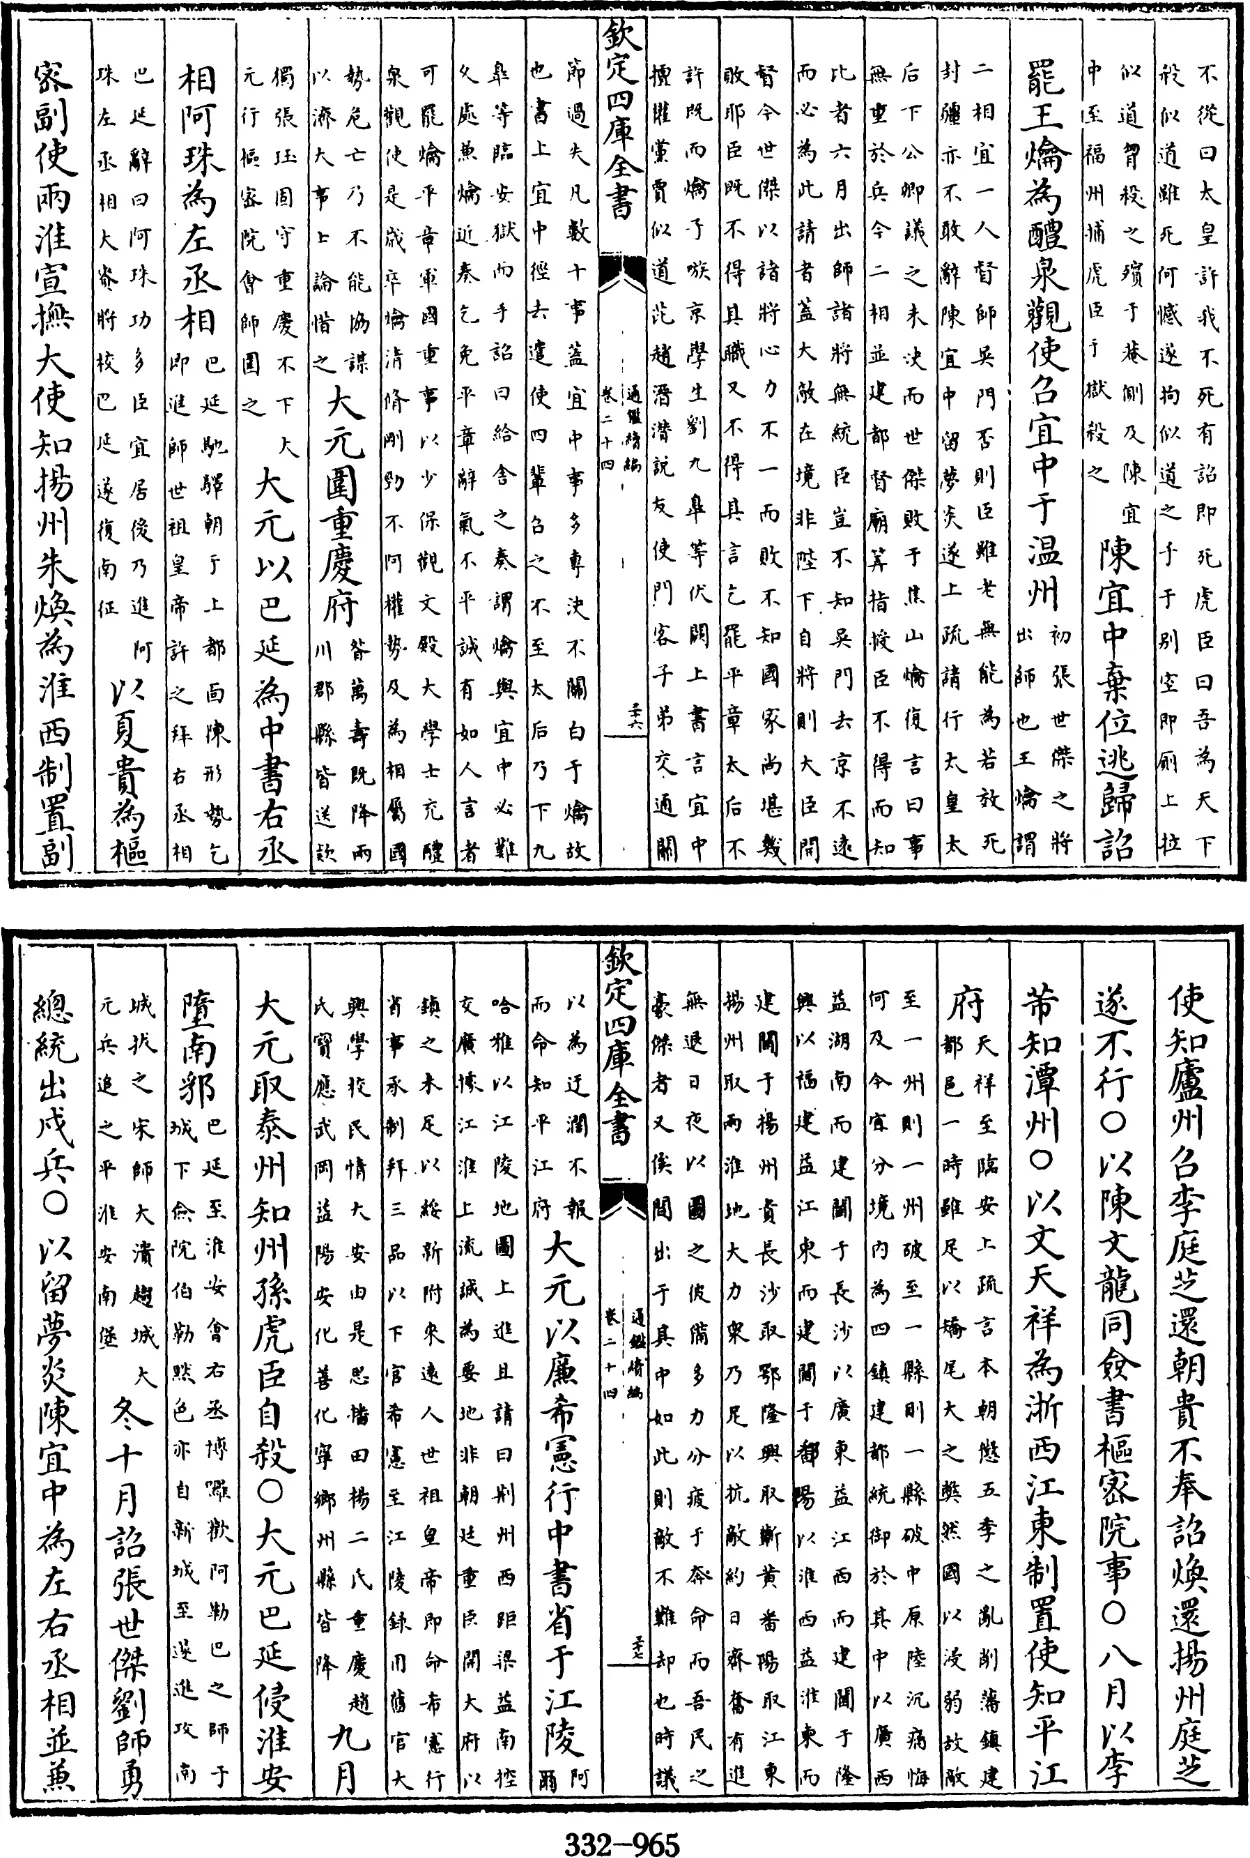 不從曰太皇許我不死有詔即死虎臣曰吾為天下
殺似道雖死何憾遂拘似道之子于别室即厠上拉
似道胷殺之殯于菴側及陳宜
中至福州捕虎臣于獄殺之
陳宜中棄位逃歸詔
罷王爚為醴泉觀使召宜中于温州
初張世傑之將
出師也王爚謂
二相宜一人督師吳門否則臣雖老無能為若效死
封疆亦不敢辭陳宜中留夢炎遂上疏請行太皇太
后下公卿議之未決而世傑敗于焦山爚復言曰事
無重於兵今二相並建都督廟筭指授臣不得而知
比者六月出師諸將無統臣豈不知吳門去京不遠
而必為此請者蓋大敵在境非陛下自將則大臣開
督今世傑以諸將心力不一而敗不知國家尚堪幾
敗耶臣既不得其職又不得其言乞罷平章太后不
許既而爚子京學生劉九臯等伏闕上書言宜中
擅權黨賈似道芘趙溍潛說友使門客子弟交通關
欽定四庫全書
通鑑續編
卷二十四
三十六
節過失凡數十事蓋宜中事多專決不關白于爚故
也書上宜中徑去遣使四輩召之不至太后乃下九
臯等臨安獄而手詔曰給舍之奏謂爚與宜中必難
久處兼爚近奏乞免平章辭氣不平誠有如人言者
可罷爚平章軍國重事以少保觀文殿大學士充醴
泉觀使是歲卒爚清脩剛勁不阿權勢及為相屬國
勢危亡乃不能協謀
以濟大事士論惜之
大元圍重慶府
昝萬壽既降兩
川郡縣皆送欵
獨張珏固守重慶不下大
元行樞密院會師圍之
大元以巴延為中書右丞
相阿珠為左丞相
巴延馳驛朝于上都面陳形勢乞
即進師世祖皇帝許之拜右丞相
巴延辭曰阿珠功多臣宜居後乃進阿
珠左丞相大賚將校巴延遂復南征
以夏貴為樞
密副使兩淮宣撫大使知揚州朱煥為淮西制置副
使知廬州召李庭芝還朝貴不奉詔煥還揚州庭芝
遂不行〇以陳文龍同僉書樞密院事〇八月以李
芾知潭州〇以文天祥為浙西江東制置使知平江
府
天祥至臨安上疏言本朝懲五季之亂削藩鎮建
都邑一時雖足以矯尾大之弊然國以浸弱故敵
至一州則一州破至一縣則一縣破中原陸沉痛悔
何及今宜分境内為四鎮建都統御於其中以廣西
益湖南而建閫于長沙以廣東益江西而建閫于隆
興以福建益江東而建閫于鄱陽以淮西益淮東而
建閫于揚州責長沙取鄂隆興取蘄黄番陽取江東
揚州取兩淮地大力衆乃足以抗敵約日齊奮有進
無退日夜以圖之彼備多力分疲于奔命而吾民之
豪傑者又俟間出于其中如此則敵不難却也時議
欽定四庫全書
通鑑續編
卷二十四
三十七
以為迂濶不報
而命知平江府
大元以廉希憲行中書省于江陵
阿
爾
哈雅以江陵地圖上進且請曰荆州西距梁益南控
交廣據江淮上流誠為要地非朝廷重臣開大府以
鎮之未足以綏新附來遠人世祖皇帝即命希憲行
省事承制拜三品以下官希憲至江陵録用舊官大
興學校民情大安由是思播田楊二氏重慶趙
氏寳應武岡益陽安化善化寧鄉州縣皆降
九月
大元取泰州知州孫虎臣自殺〇大元巴延侵淮安
墮南郛
巴延至淮安會右丞博囉歡阿勒巴之師于
城下僉院伯勒黙色亦自新城至遂進攻南
城拔之宋師大潰趨城大
元兵追之平淮安南堡
冬十月詔張世傑劉師勇
總統出戍兵〇以留夢炎陳宜中為左右丞相並兼
332-965